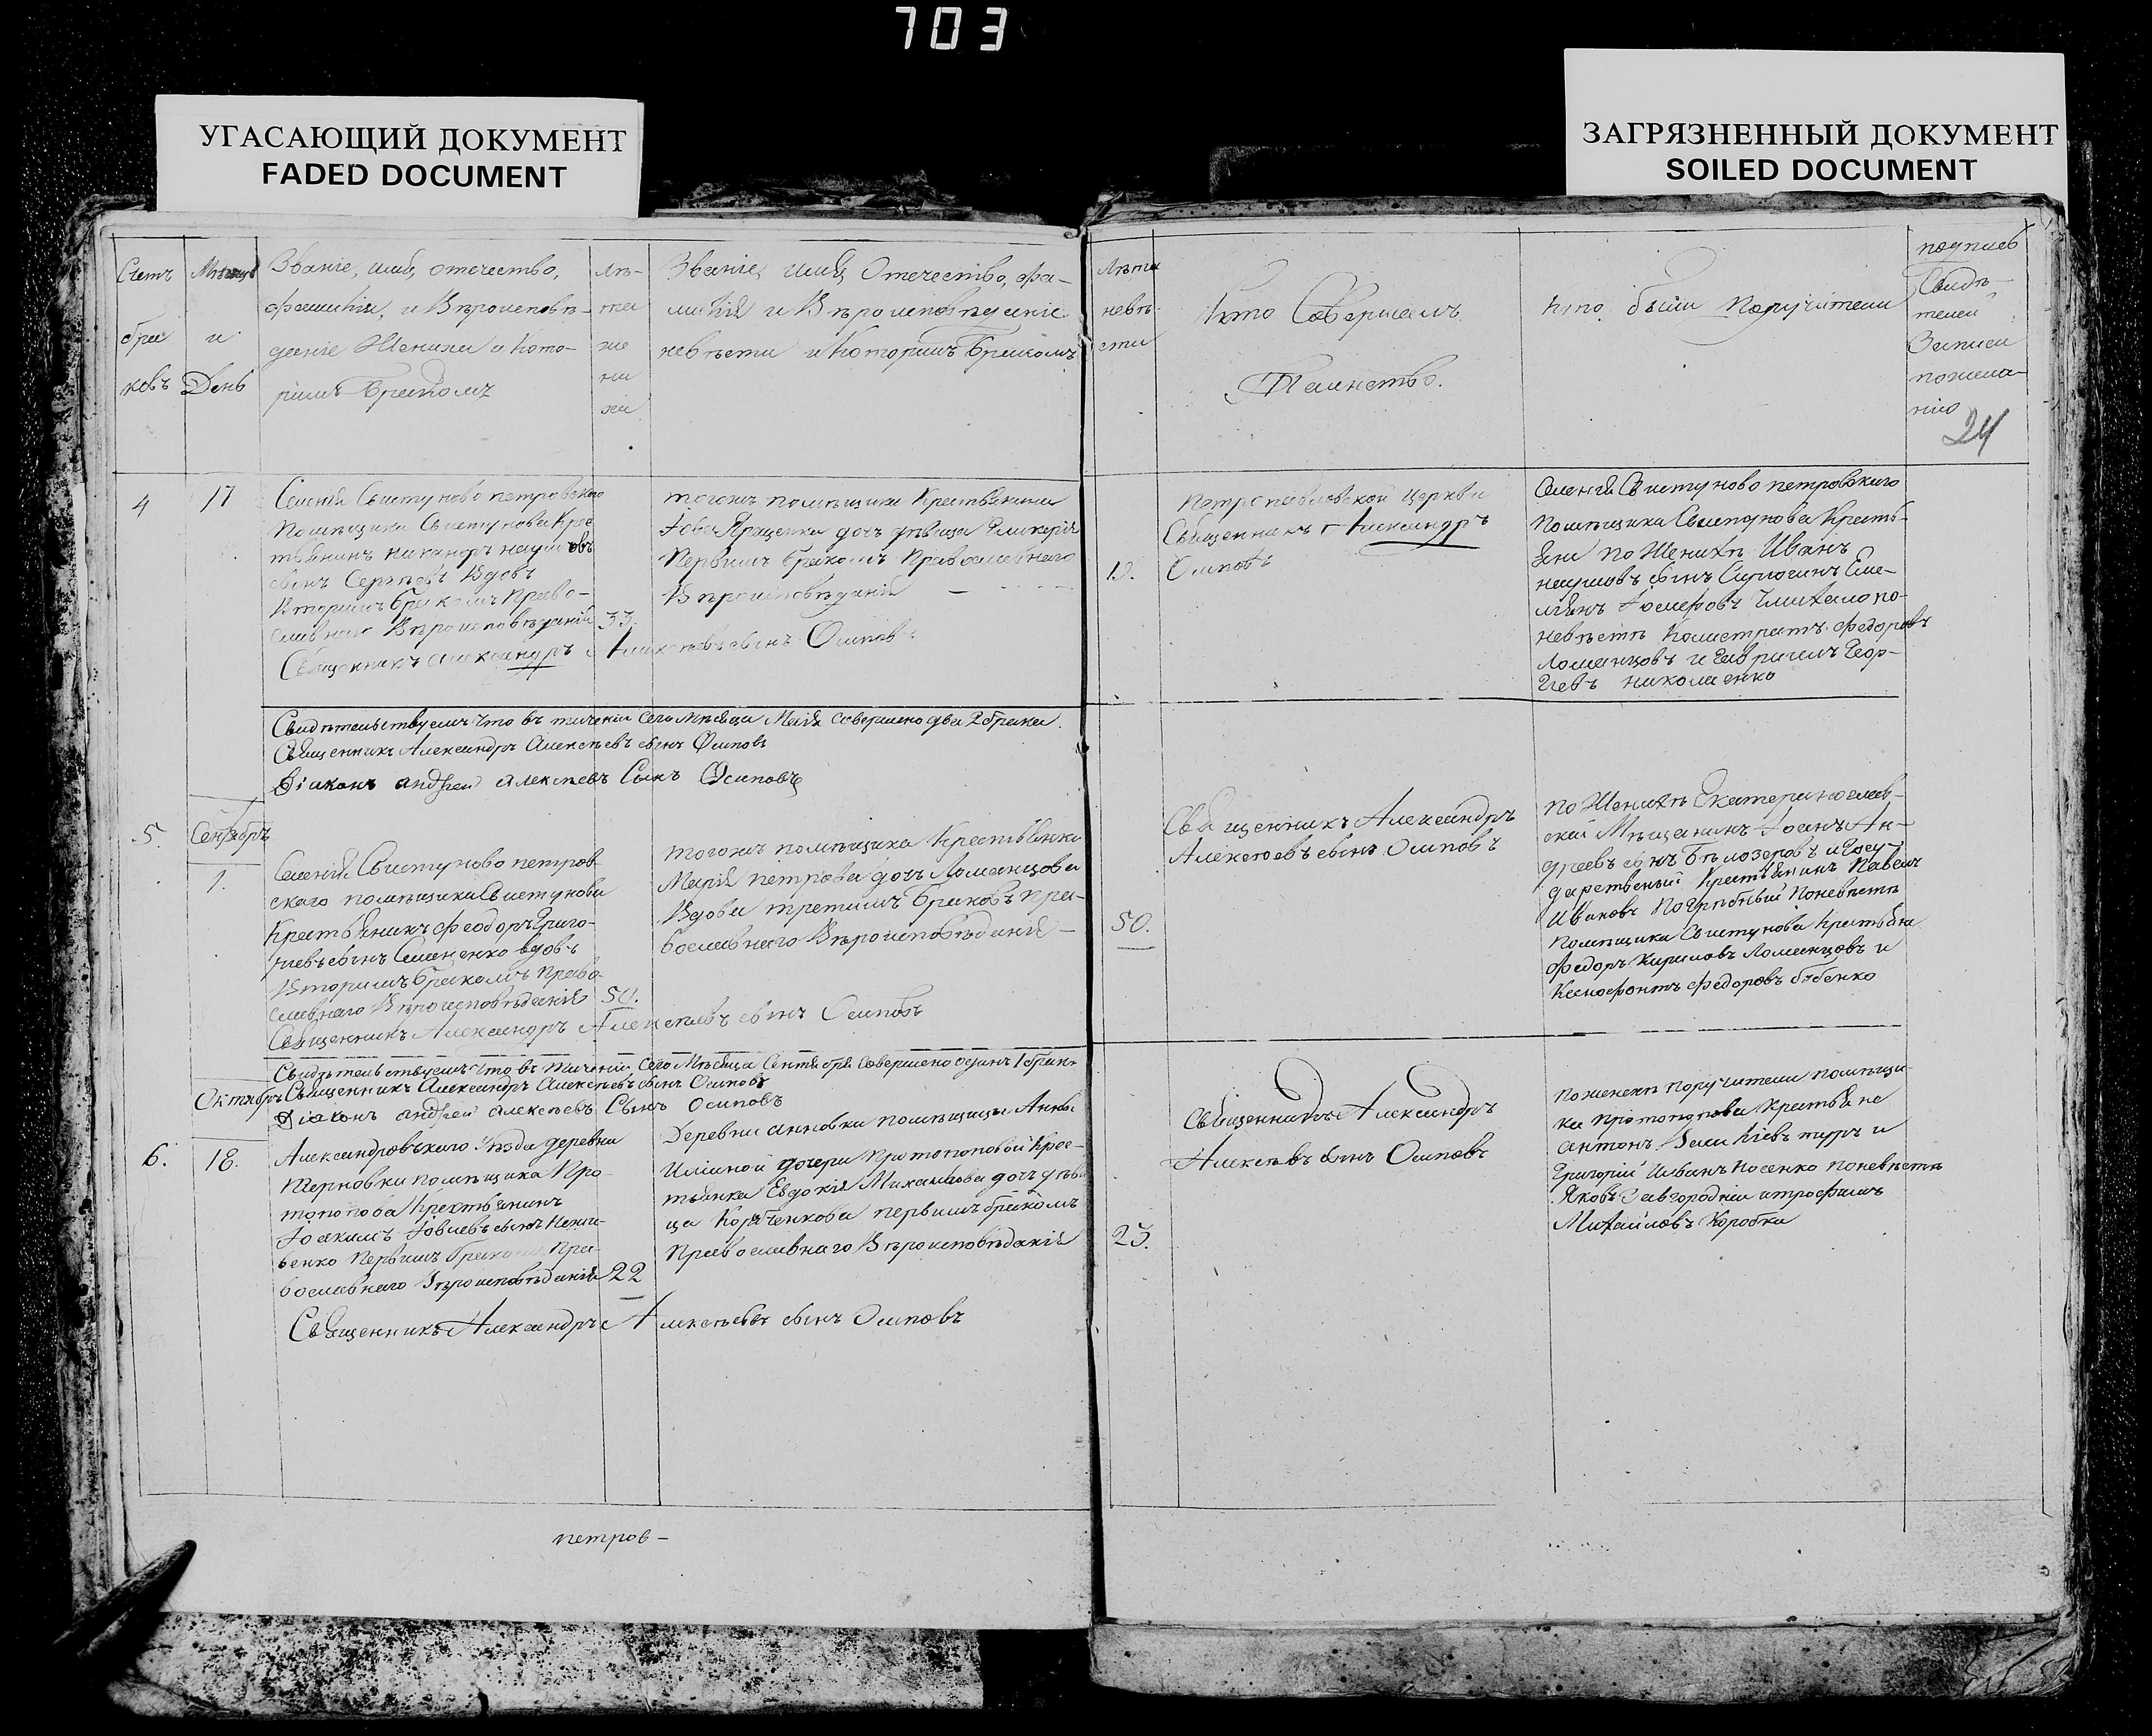 703
УГАСАЮЩИЙ ДОКУМЕНТ
FADED DOCUMENT
ЗАГРЯЗНЕННЫЙ ДОКУМЕНТ
SOILED DOCUMENT
Счетъ
бра
ковъ
и
День
Званіе, имя, отечество,
фамилія, и Вѣроисповѣ-
даніе Жениха и кото-
римъ бракомъ
Лѣ-
та
же
ни
ха
Званіе, имя, Отечество, фа-
милія и Вѣроисповѣданіе
невѣсти и Которимъ бракомъ
Лѣта
невѣ
сти
Кто Совершалъ
Таинство.
Кто были Поручители
подпись
Свидѣ-
телей
Записи
по жела-
нію
24
4
17
Селенія Свистуново петровскаго
Помѣщика Свистунова Крес
тьянинъ никаноръ наумовъ
сынъ Вдовъ
Вторимъ бракомъ Право-
славнаго Вѣроисповѣданія
33.
Священникъ Александръ Алексѣевъ сынъ Осиповъ
тогожъ помѣщика Крестьянина
дочь дѣвица Гликерія
Первимъ бракомъ Православнаго
Вѣроисповѣданія
19.
Петропавловской Церкви
Священникъ Александръ
Осиповъ
Селенія Свистуново петровскаго
Помѣщика Свистунова Кресть-
яни по Женихѣ Иванъ
наумовъ сынъ Еме-
льянъ по
невѣстѣ Калистратъ федоровъ
Ломанцовъ и Гавріилъ Геор-
гіевъ николаенко
Свидѣтельствуемъ что въ теченіи Сего Мѣсяца Маія совершено два 2 брака.
Священникъ Александръ Алексѣевъ сынъ Осиповъ
Діаконъ андрей алексѣевъ Сынъ Осиповъ
5.
Сентябрь
1.
Селенія Свистуново петров
скаго помѣщика Свистунова
Крестьянинъ феодоръ Григо-
ріевъ сынъ Семененко вдовъ
Вторимъ бракомъ Право-
славнаго Вѣроисповѣданія
50.
Священникъ Александръ Алексѣевъ сынъ Осиповъ
тогожъ помѣщика Крестьянка
Марія петрова дочь Ломанцова
Вдова третимъ бракомъ Пра-
вославнаго Вѣроисповѣданія
50.
Священникъ Александръ
Алексѣевъ сынъ Осиповъ
по Женихѣ Екатеринослав-
скій Мѣщанинъ Іоанъ Ан-
дреевъ сынъ Бѣлозеровъ и Госу-
дарственый Крестьянинъ Павелъ
Ивановъ Погрибный по невѣстѣ
помѣщика Свистунова Крестьяне
федоръ Кириловъ Ломанцовъ и
Ксенофонтъ федоровъ бабенко
Свидѣтельствуемъ что въ теченіи Сего Мѣсяца Сентября Совершено одинъ 1 бракъ
Священникъ Александръ Алексѣевъ сынъ Осиповъ
Діаконъ андрей алексѣевъ Сынъ Осиповъ
Октябрь
6.
18.
Александровскаго Уѣзда деревни
Терновки помѣщика Про-
топопова Крестьянинъ
Іоакимъ Іовлевъ сынъ
Первимъ бракомъ Пра-
вославнаго Вѣроисповѣданія
22
Священникъ Александръ Алексѣевъ сынъ Осиповъ
Деревни анновки помѣщицы Анны
Иліиной дочери Протопоповой Крес-
тьянка Евдокія Михаилова дочь дѣви
ца первимъ бракомъ
Православнаго Вѣроисповѣданія
23.
Священникъ Александръ
Алексѣевъ сынъ Осиповъ
по женихѣ Поручители помѣщи
ка Протопопова Крестьяне
антонъ и
Григорій по невѣстѣ
Яковъ Завгородній и трофимъ
Михайловъ Коробка
петров-